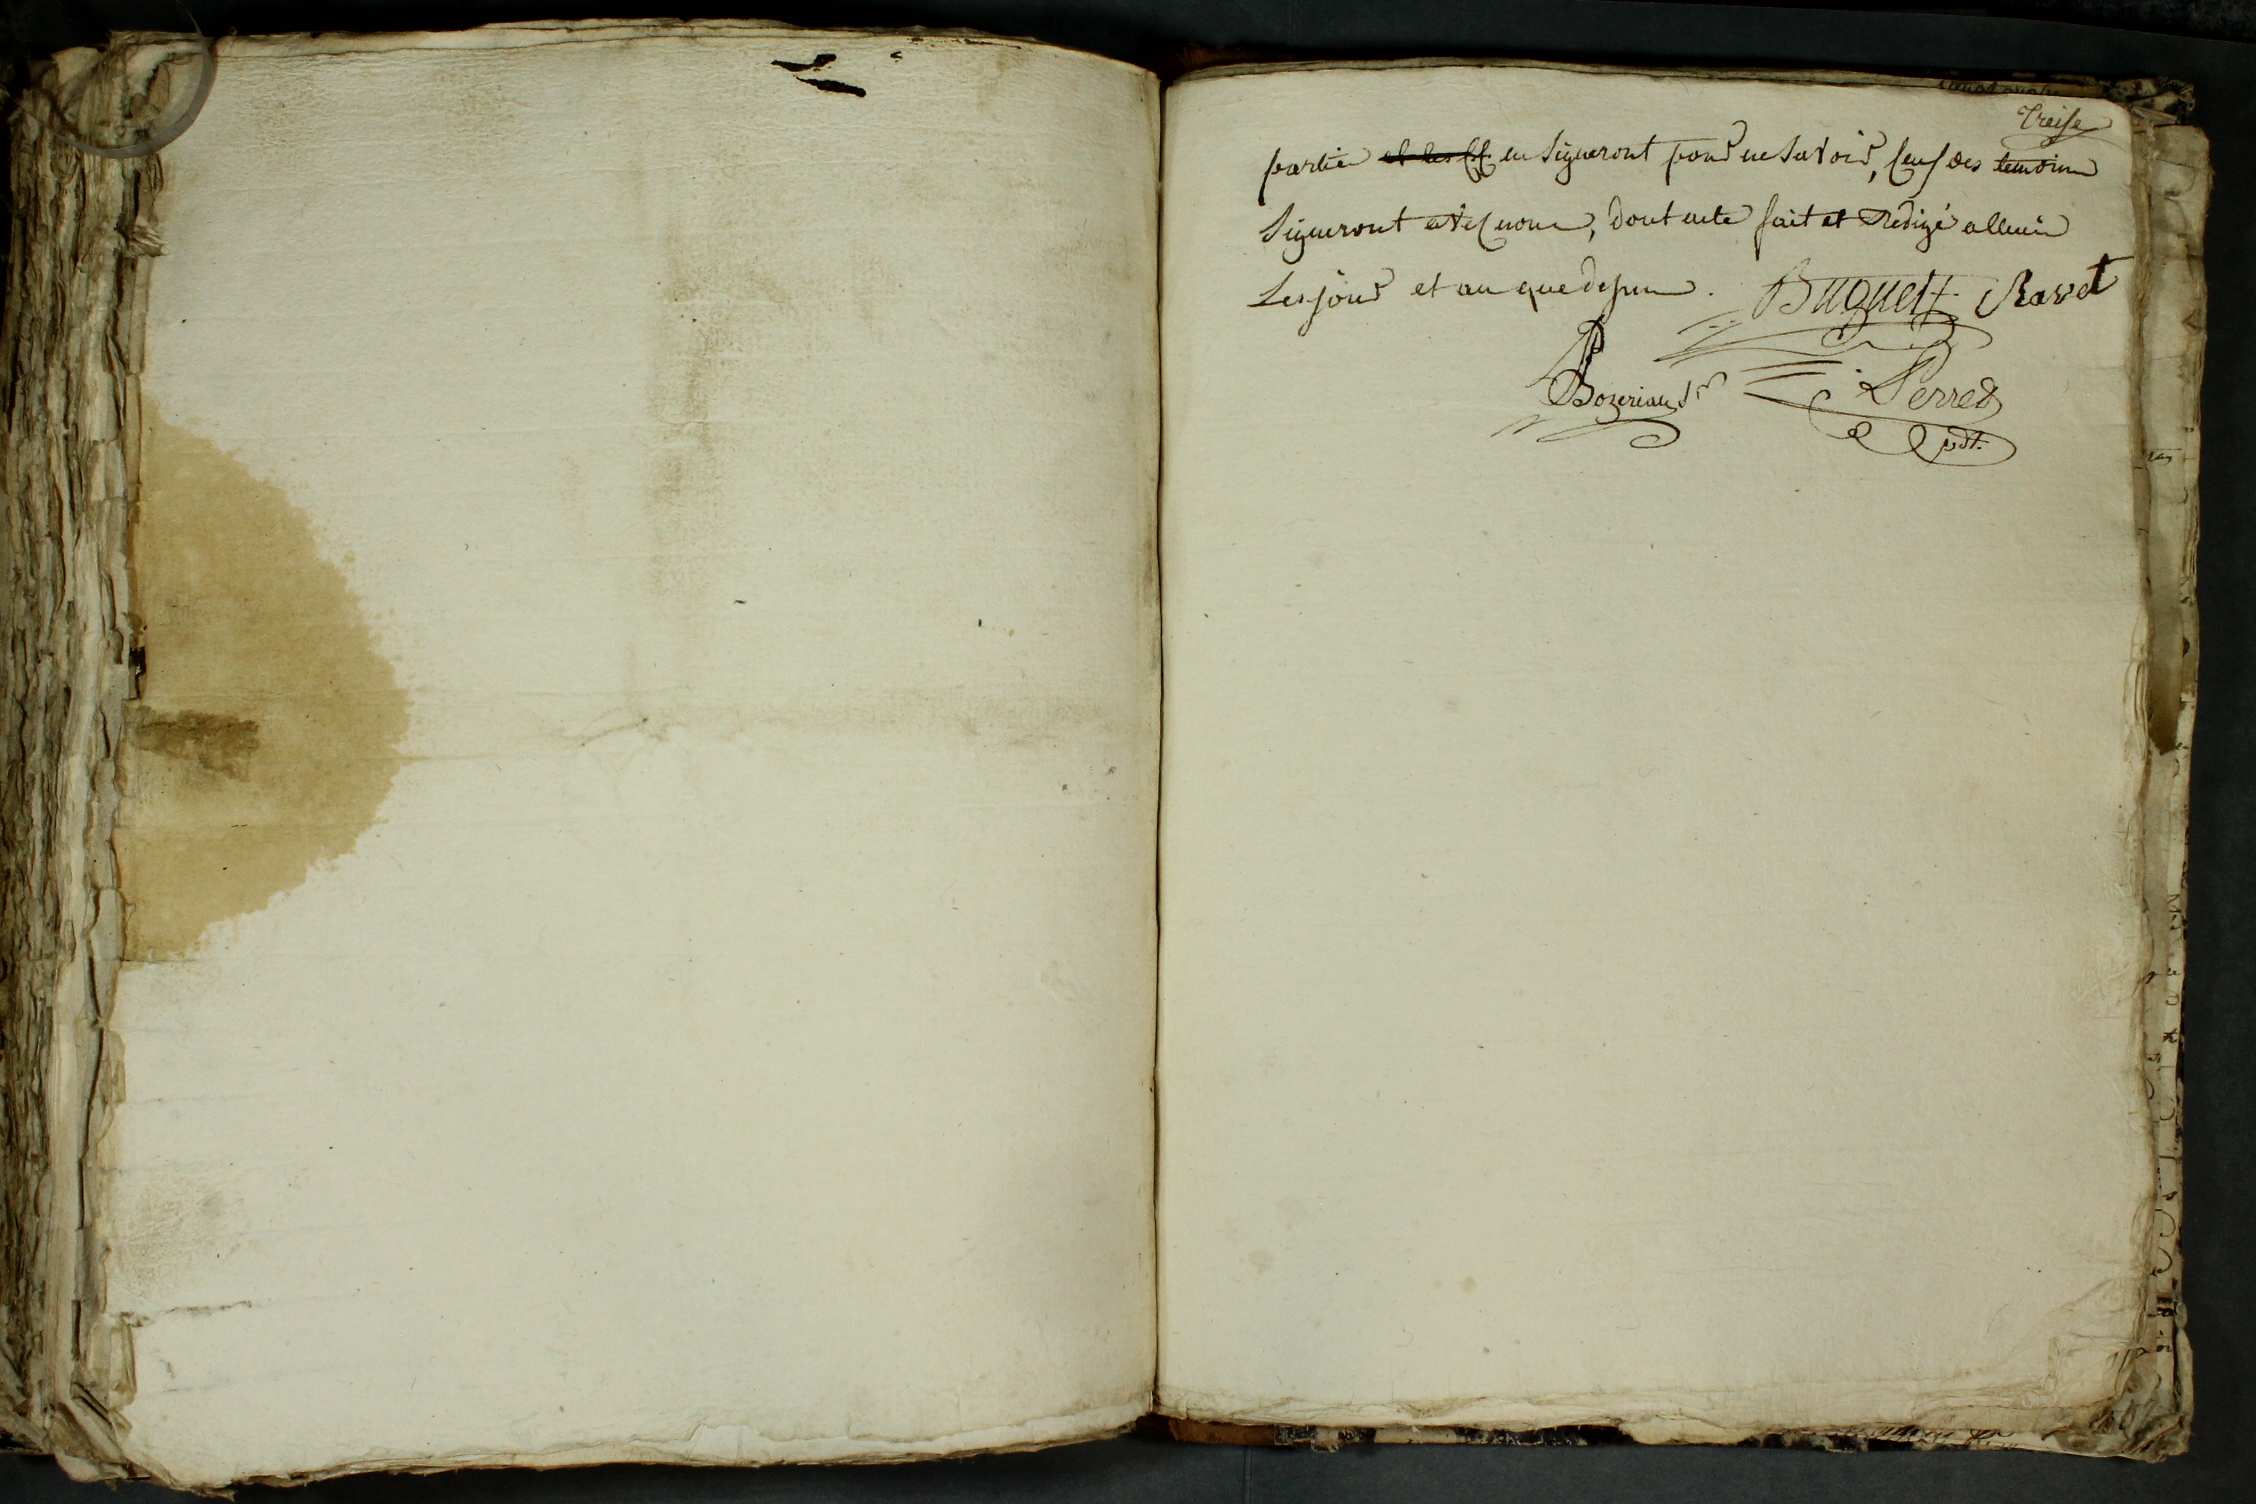 Treise
parties et les ff. en Signeront pour ne Savoir, ceux des temoins
Signeront avec nous, dont acte fait et redigé
Les jour et an que dessus. Buguet Ravet
Bozeriau Perret
pdt.